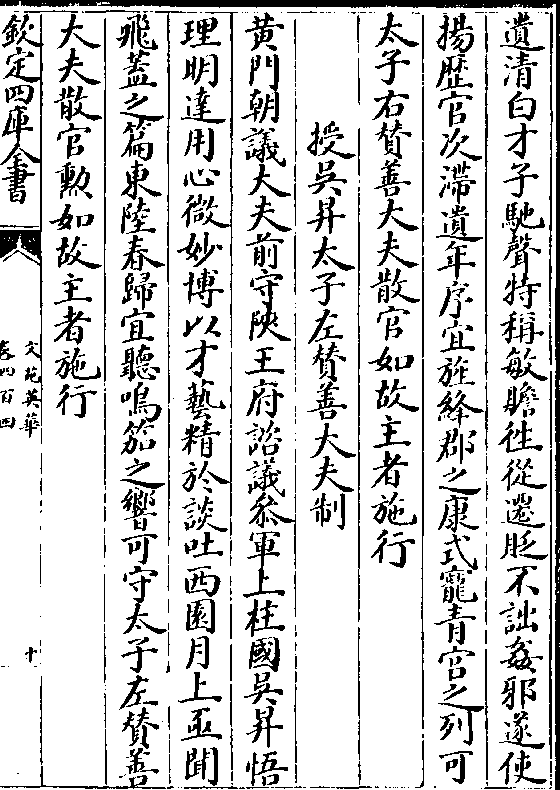 遺清白才子馳聲特稱敏贍徃從遷貶不詘姦邪遂使
揚歴官次滯遺年序宜旌絳郡之康式寵青宫之列可
太子右賛善大夫散官如故主者施行
授吳昇太子左賛善大夫制
黄門朝議大夫前守陜王府諮議叅軍上柱國吳昇悟
理明達用心微妙博以才藝精於談吐西園月上亟聞
飛葢之篇東陸春歸宜聽鳴笳之響可守太子左賛善
大夫散官勲如故主者施行
欽定四庫全書
文苑英華
卷四百四
十